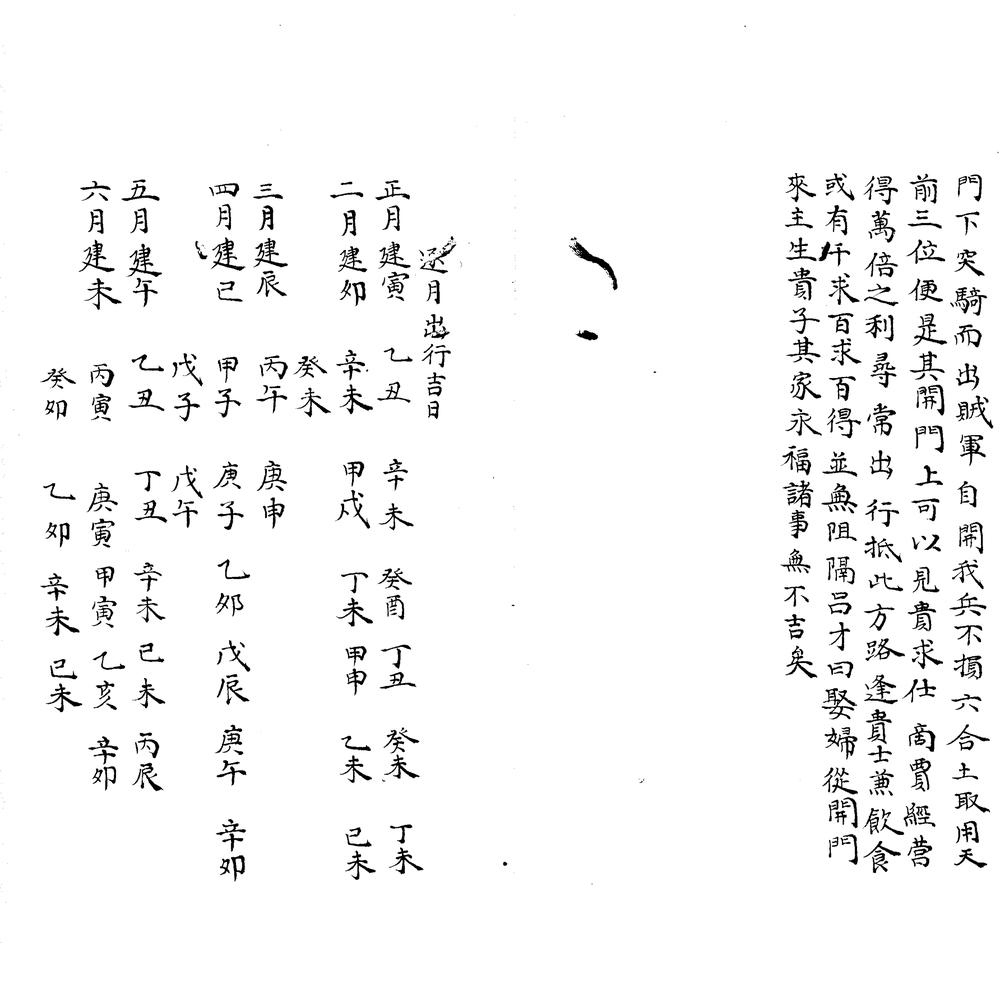 門下突騎而出賊軍自開我兵不損六合土取用天
前三位便是其開門上可以見貴求仕商賈經營
得萬倍之利尋常出行抵此方路逢貴士兼飲食
或有仟求百求百得並無阻隔吕才曰娶婦從開門
來主生貴子其家永福諸事無不吉矣
逐月出行吉日
正月建寅 乙丑 辛未 癸酉 丁丑 癸未 丁未
二月建卯 辛未 甲戌 丁未 甲申 乙未 己未
癸未
三月建辰 丙午 庚申
四月建巳 甲子 庚子 乙卯 戊辰 庚午 辛卯
戊子 戊午
五月建午 乙丑 丁丑 辛未 己未 丙辰
六月建未 丙寅 庚寅 甲寅 乙亥 辛卯
癸卯 乙卯 辛未 己未